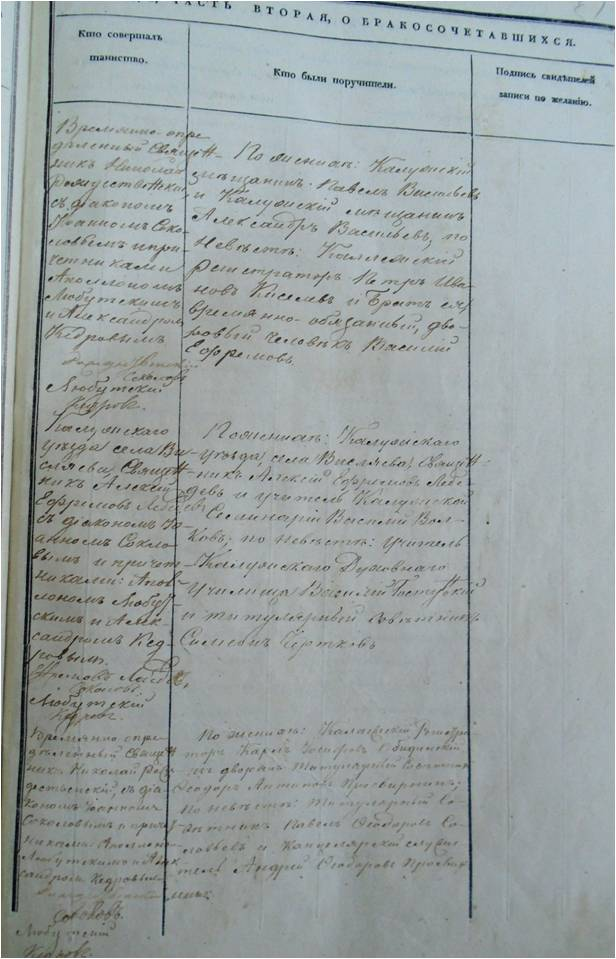 ЧАСТЬ ВТОРАЯ, О БРАКОСОЧЕТАВШИХСЯ.
Кто совершалъ
таинство.
Кто были поручители.
Подпись свидѣтелей
записи по желанію.
Временно-опре
дѣленный Священ
никъ Николай
Рождественскій
съ діакономъ
Іоанномъ Соко
ловымъ и при
четниками
Аполлономъ
Любутскимъ
и Александромъ
Кедровымъ
Соколовъ
Любутскій
Кедровъ.
По женихѣ: Калужскій
мѣщанинъ: Павелъ Васильевъ
и Калужскій мѣщанинъ
Александръ Васильевъ; по
Невѣстѣ: Коллежскій
Регистраторъ Петръ Ива
новъ Киселевъ и Братъ ея
временно-обязанный, дво
ровый человѣкъ Василій
Ефремовъ.
Калужскаго
уѣзда, села
Священ
никъ Алексѣй
Ефримовъ
съ діакономъ Іо
анномъ Соколо
вымъ и причет
никами: Апол
лономъ Любут
скимъ и Алек
сандромъ Кед
ровымъ.
Соколовъ.
Любутскій
Кедровъ.
По женихѣ: Калужскаго
уѣзда, села Священ
никъ Алексѣй Ефримовъ Лебе
девъ и учитель Калужской
Семинаріи Василій Вол
ковъ; по невѣстѣ: Учитель
Калужскаго Духовнаго
Училища Василій
и титулярный Совѣтникъ
Симеонъ Чертковъ
Временно опре
дѣленный Священ
никъ Николай Рож
дественскій, съ діа
кономъ Іоанномъ
Соколовымъ и причет
никами: Аполлоно
Любутскимъ и Алек
сандромъ Кедровым
Соколовъ.
Любутскій
Кедровъ.
По женихѣ:
торъ Карлъ Іосифовъ
изъ дворянъ Титулярный Совѣтник
Ѳеодоръ Антоновъ
По невѣстѣ: Титулярный Со
вѣтникъ Павелъ Ѳеодоровъ Со
ловьевъ и Канцелярскій служи
тель Андрей Ѳеодоровъ